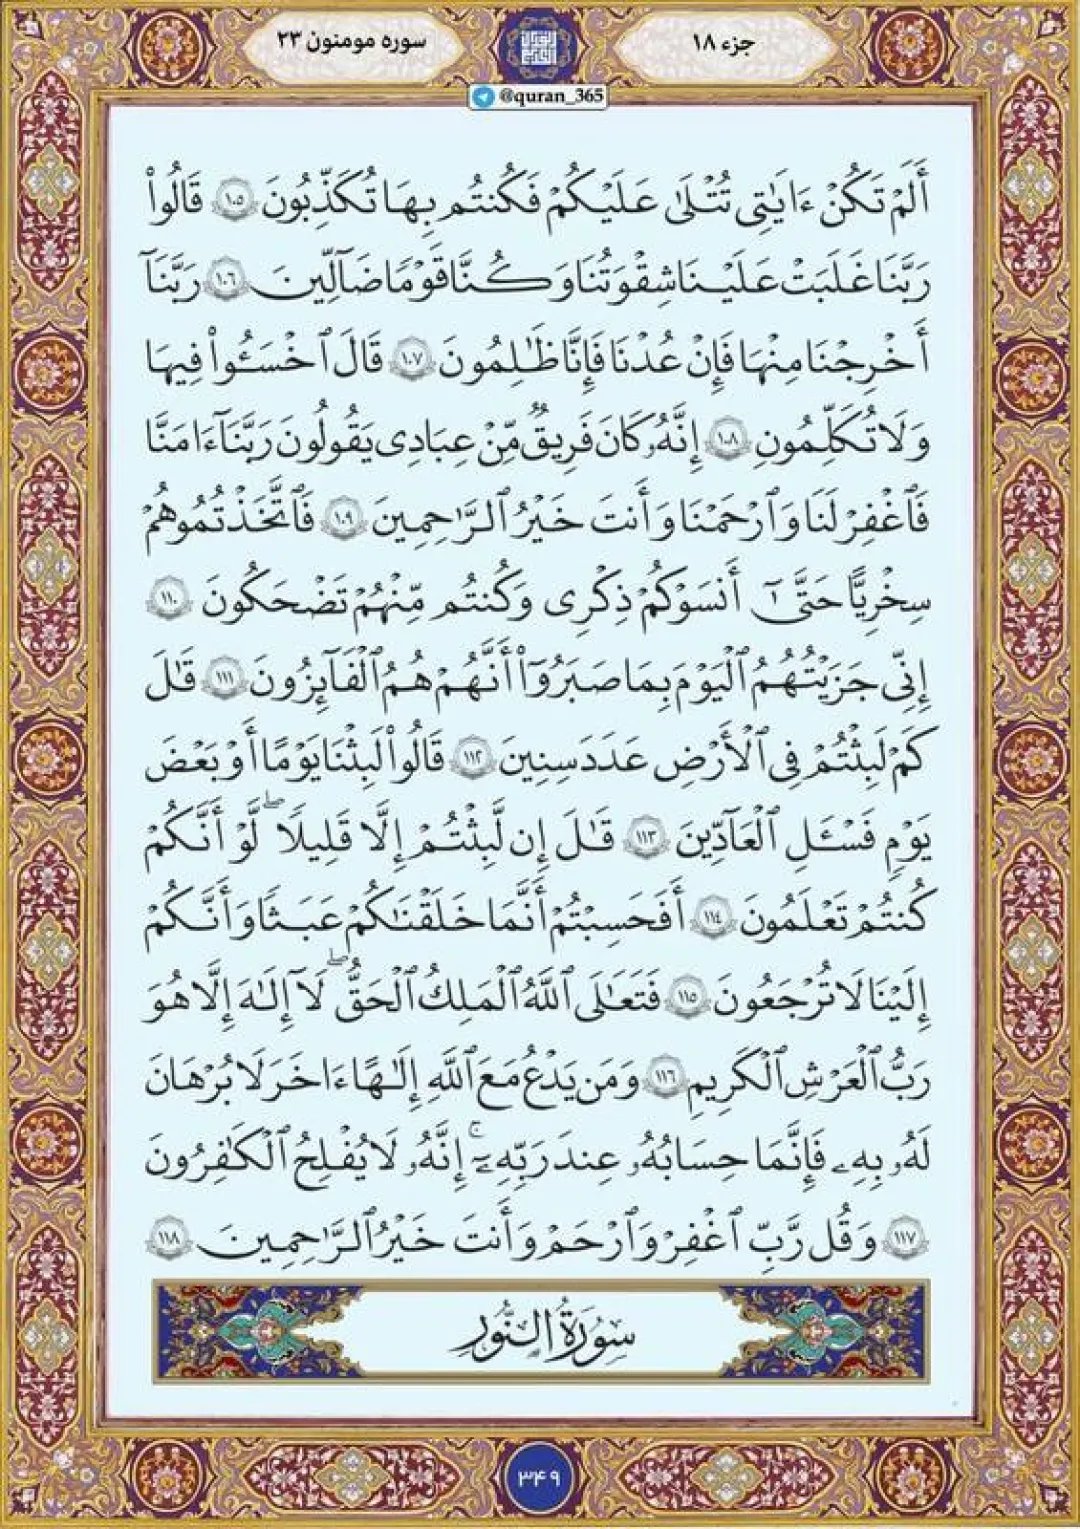 جزء ۱۸
سوره مومنون ۲۳
@quran_365
أَلَمْ تَكُنْ ءَايَٰتِى تُتْلَىٰ عَلَيْكُمْ فَكُنتُم بِهَا تُكَذِّبُونَ ١٠٥ قَالُوا۟
رَبَّنَا غَلَبَتْ عَلَيْنَا شِقْوَتُنَا وَكُنَّا قَوْمًا ضَآلِّينَ ١٠٦ رَبَّنَآ
أَخْرِجْنَا مِنْهَا فَإِنْ عُدْنَا فَإِنَّا ظَٰلِمُونَ ١٠٧ قَالَ ٱخْسَـُٔوا۟ فِيهَا
وَلَا تُكَلِّمُونِ ١٠٨ إِنَّهُۥ كَانَ فَرِيقٌ مِّنْ عِبَادِى يَقُولُونَ رَبَّنَآ ءَامَنَّا
فَٱغْفِرْ لَنَا وَٱرْحَمْنَا وَأَنتَ خَيْرُ ٱلرَّٰحِمِينَ ١٠٩ فَٱتَّخَذْتُمُوهُمْ
سِخْرِيًّا حَتَّىٰٓ أَنسَوْكُمْ ذِكْرِى وَكُنتُم مِّنْهُمْ تَضْحَكُونَ ١١٠
إِنِّى جَزَيْتُهُمُ ٱلْيَوْمَ بِمَا صَبَرُوٓا۟ أَنَّهُمْ هُمُ ٱلْفَآئِزُونَ ١١١ قَٰلَ
كَمْ لَبِثْتُمْ فِى ٱلْأَرْضِ عَدَدَ سِنِينَ ١١٢ قَالُوا۟ لَبِثْنَا يَوْمًا أَوْ بَعْضَ
يَوْمٍ فَسْـَٔلِ ٱلْعَآدِّينَ ١١٣ قَٰلَ إِن لَّبِثْتُمْ إِلَّا قَلِيلًا ۖ لَّوْ أَنَّكُمْ
كُنتُمْ تَعْلَمُونَ ١١٤ أَفَحَسِبْتُمْ أَنَّمَا خَلَقْنَٰكُمْ عَبَثًا وَأَنَّكُمْ
إِلَيْنَا لَا تُرْجَعُونَ ١١٥ فَتَعَٰلَى ٱللَّهُ ٱلْمَلِكُ ٱلْحَقُّ ۖ لَآ إِلَٰهَ إِلَّا هُوَ
رَبُّ ٱلْعَرْشِ ٱلْكَرِيمِ ١١٦ وَمَن يَدْعُ مَعَ ٱللَّهِ إِلَٰهًا ءَاخَرَ لَا بُرْهَٰنَ
لَهُۥ بِهِۦ فَإِنَّمَا حِسَابُهُۥ عِندَ رَبِّهِۦٓ ۚ إِنَّهُۥ لَا يُفْلِحُ ٱلْكَٰفِرُونَ
١١٧ وَقُل رَّبِّ ٱغْفِرْ وَٱرْحَمْ وَأَنتَ خَيْرُ ٱلرَّٰحِمِينَ ١١٨
سُورَةُ النُّورِ
۳۴۹